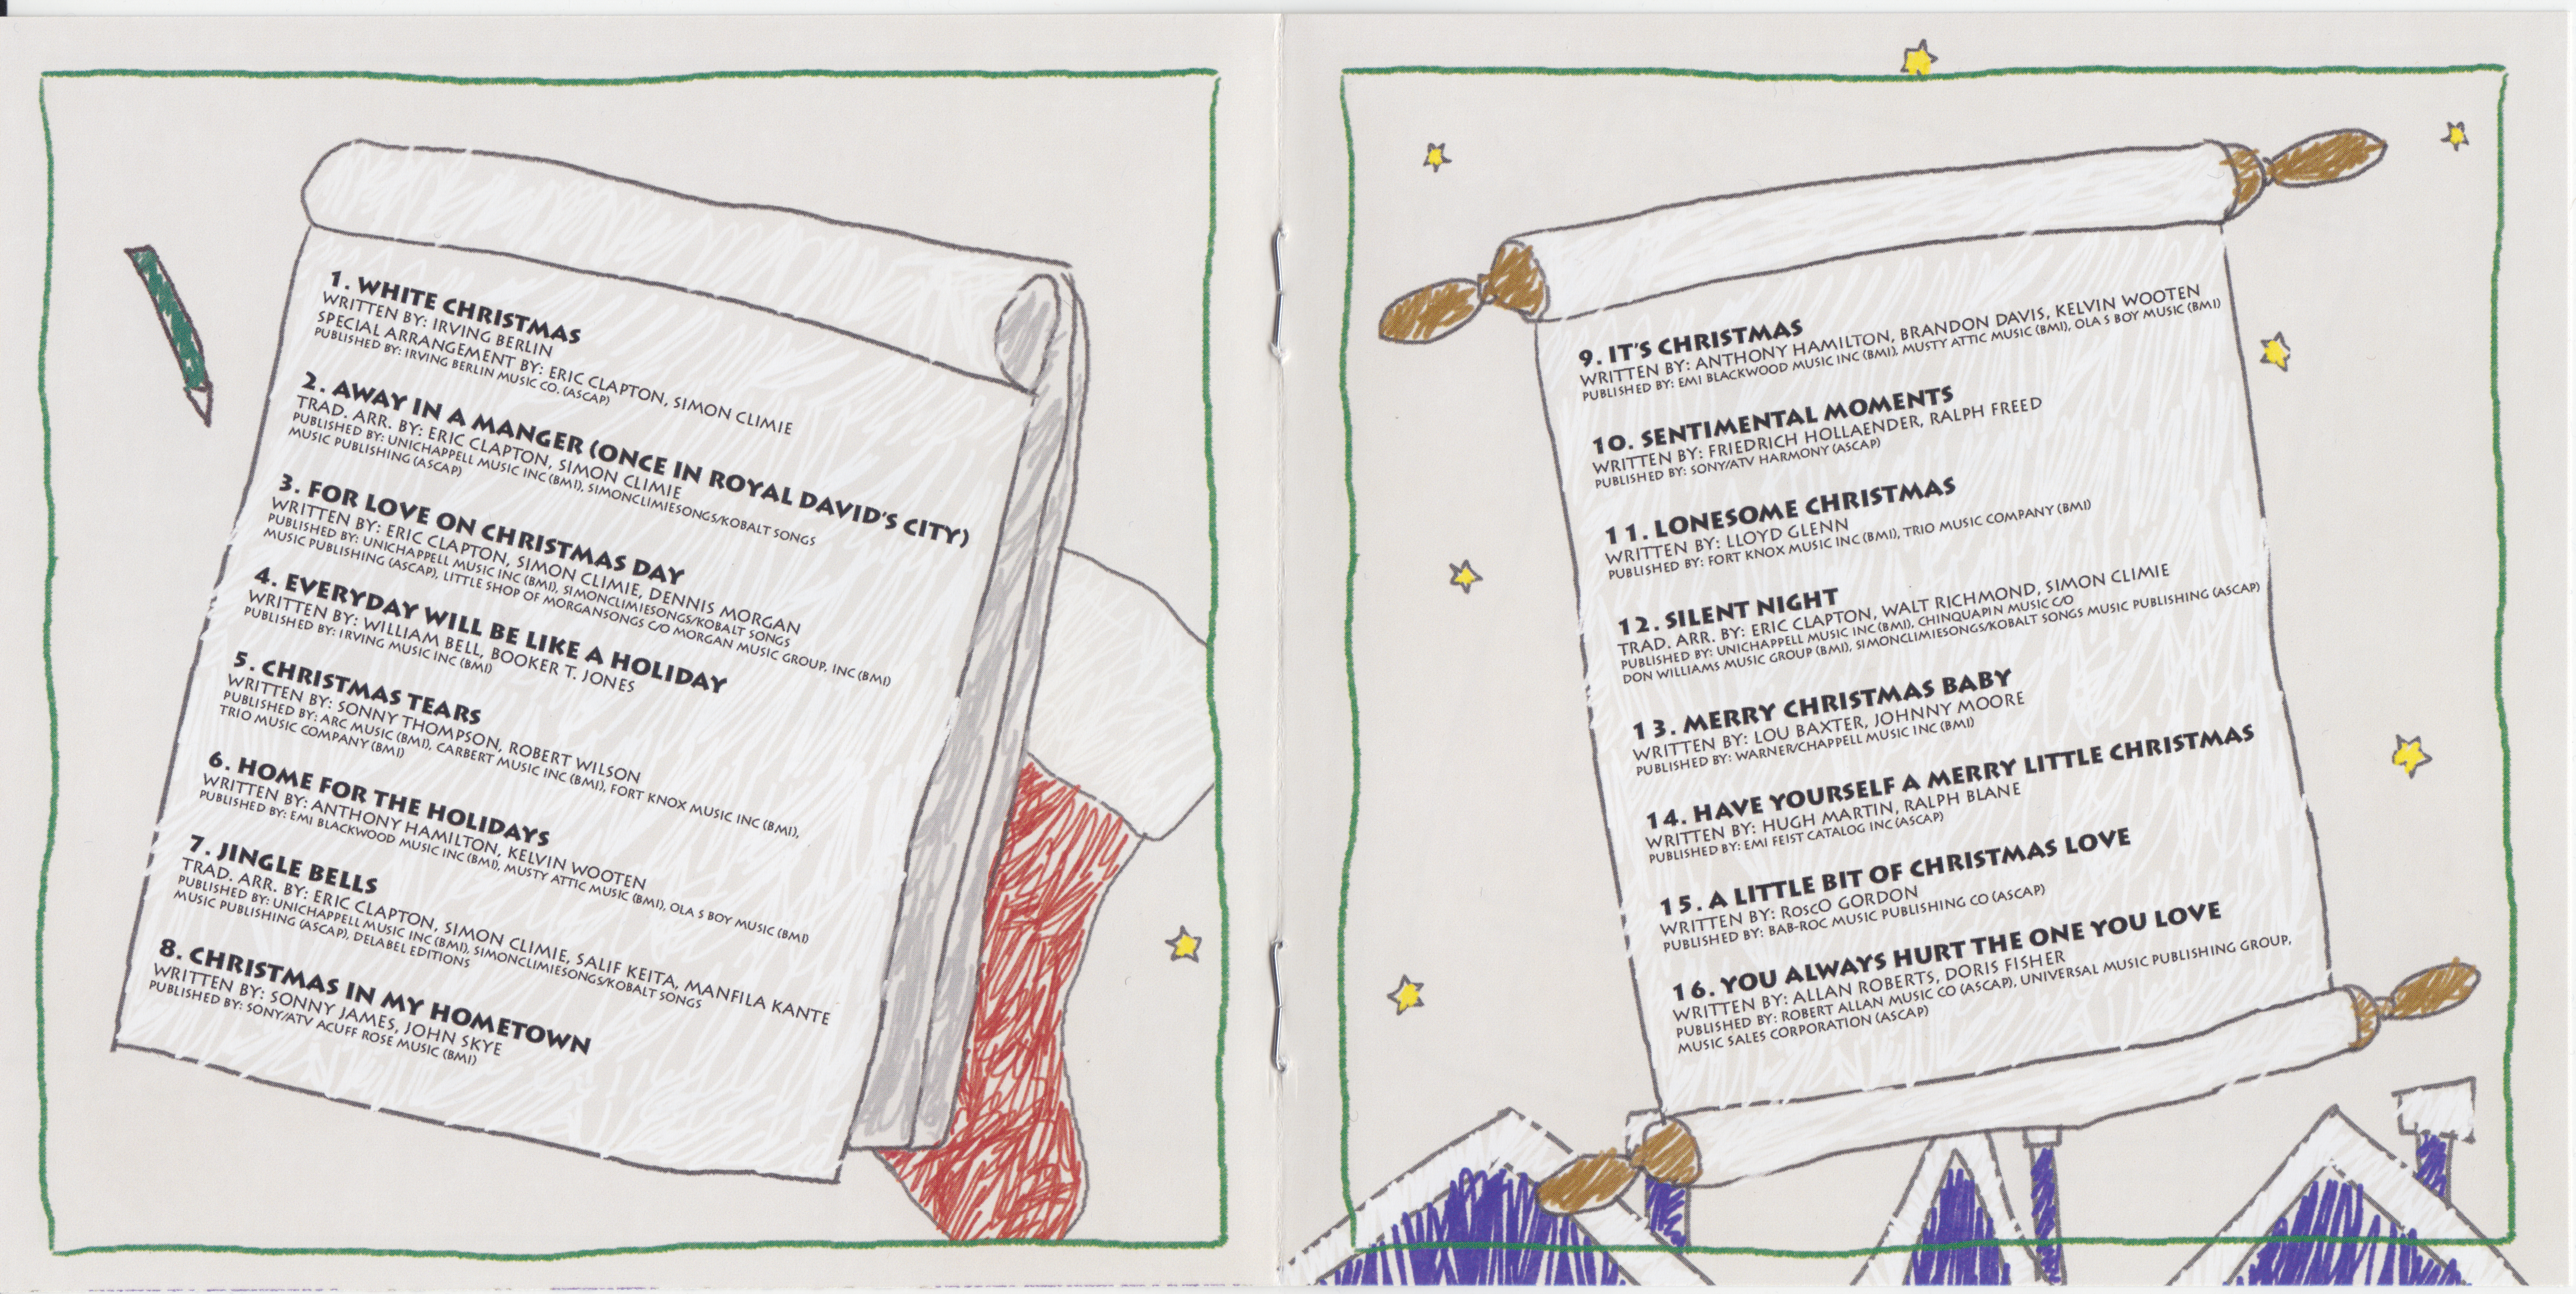 1. WHITE CHRISTMAS
WRITTEN BY: IRVING BERLIN
SPECIAL ARRANGEMENT BY: ERIC CLAPTON, SIMON CLIMIE
PUBLISHED BY: IRVING BERLIN MUSIC CO. (ASCAP)
2. AWAY IN A MANGER (ONCE IN ROYAL DAVID'S CITY)
TRAD. ARR. BY: ERIC CLAPTON, SIMON CLIMIE
PUBLISHED BY: UNICHAPPELL MUSIC INC (BMI), SIMONCLIMIESONGS/KOBALT SONGS
MUSIC PUBLISHING (ASCAP)
3. FOR LOVE ON CHRISTMAS DAY
WRITTEN BY: ERIC CLAPTON, SIMON CLIMIE, DENNIS MORGAN
PUBLISHED BY: UNICHAPPELL MUSIC INC (BMI), SIMONCLIMIESONGS/KOBALT SONGS
MUSIC PUBLISHING (ASCAP), LITTLE SHOP OF MORGANSONGS C/O MORGAN MUSIC GROUP, INC (BMI)
4. EVERYDAY WILL BE LIKE A HOLIDAY
WRITTEN BY: WILLIAM BELL, BOOKER T. JONES
PUBLISHED BY: IRVING MUSIC INC (BMI)
5. CHRISTMAS TEARS
WRITTEN BY: SONNY THOMPSON, ROBERT WILSON
PUBLISHED BY: ARC MUSIC (BMI), CARBERT MUSIC INC (BMI), FORT KNOX MUSIC INC (BMI),
TRIO MUSIC COMPANY (BMI)
6. HOME FOR THE HOLIDAYS
WRITTEN BY: ANTHONY HAMILTON, KELVIN WOOTEN
PUBLISHED BY: EMI BLACKWOOD MUSIC INC (BMI), MUSTY ATTIC MUSIC (BMI), OLA S BOY MUSIC (BMI)
7. JINGLE BELLS
TRAD. ARR. BY: ERIC CLAPTON, SIMON CLIMIE, SALIF KEITA, MANFILA KANTE
PUBLISHED BY: UNICHAPPELL MUSIC INC (BMI), SIMONCLIMIESONGS/KOBALT SONGS
MUSIC PUBLISHING (ASCAP), DELABEL EDITIONS
8. CHRISTMAS IN MY HOMETOWN
WRITTEN BY: SONNY JAMES, JOHN SKYE
PUBLISHED BY: SONY/ATV ACUFF ROSE MUSIC (BMI)
9. IT'S CHRISTMAS
WRITTEN BY: ANTHONY HAMILTON, BRANDON DAVIS, KELVIN WOOTEN
PUBLISHED BY: EMI BLACKWOOD MUSIC INC (BMI), MUSTY ATTIC MUSIC (BMI), OLA S BOY MUSIC (BMI)
10. SENTIMENTAL MOMENTS
WRITTEN BY: FRIEDRICH HOLLAENDER, RALPH FREED
PUBLISHED BY: SONY/ATV HARMONY (ASCAP)
11. LONESOME CHRISTMAS
WRITTEN BY: LLOYD GLENN
PUBLISHED BY: FORT KNOX MUSIC INC (BMI), TRIO MUSIC COMPANY (BMI)
12. SILENT NIGHT
TRAD. ARR. BY: ERIC CLAPTON, WALT RICHMOND, SIMON CLIMIE
PUBLISHED BY: UNICHAPPELL MUSIC INC (BMI), CHINQUAPIN MUSIC C/O
DON WILLIAMS MUSIC GROUP (BMI), SIMONCLIMIESONGS/KOBALT SONGS MUSIC PUBLISHING (ASCAP)
13. MERRY CHRISTMAS BABY
WRITTEN BY: LOU BAXTER, JOHNNY MOORE
PUBLISHED BY: WARNER/CHAPPELL MUSIC INC (BMI)
14. HAVE YOURSELF A MERRY LITTLE CHRISTMAS
WRITTEN BY: HUGH MARTIN, RALPH BLANE
PUBLISHED BY: EMI FEIST CATALOG INC (ASCAP)
15. A LITTLE BIT OF CHRISTMAS LOVE
WRITTEN BY: ROSCO GORDON
PUBLISHED BY: BAB-ROC MUSIC PUBLISHING CO (ASCAP)
16. YOU ALWAYS HURT THE ONE YOU LOVE
WRITTEN BY: ALLAN ROBERTS, DORIS FISHER
PUBLISHED BY: ROBERT ALLAN MUSIC CO (ASCAP), UNIVERSAL MUSIC PUBLISHING GROUP,
MUSIC SALES CORPORATION (ASCAP)